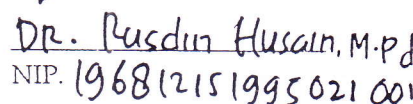 DR. Rusdin Husain, M.Pd
NIP. 196812151995021001